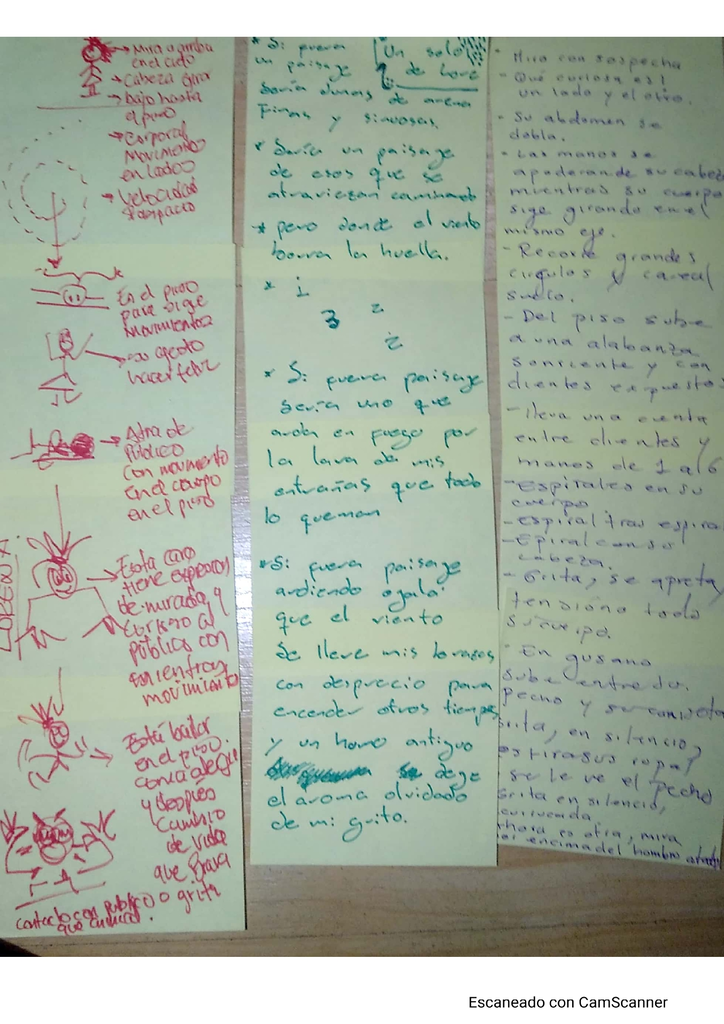 Mira arriba
en el cielo
Cabeza gira
bajo hasta
el piso
Corporal
Movimiento
en ladeo
Velocidad
despacio
En el piso
para sige
movimientos
hacer feliz
Atra de
Público
con movimiento
En el cuerpo
en el piso
LORENA
Esta cara
tiene expresion
de mirada y
público con
movimiento
Está bailar
en el piso.
con alegria
y despues
Cambio
de
que Grava
o grita
contecto con publico
* Si fuera
un paisage
Un solo
de hore
Sería dunas de arena
Finas y sinuosas.
* Sería un paisage
de esos que se
atraviezan caminando
* pero donde el viento
borra la huella.
* 1
3 2
2
* Si fuera paisage
sería uno que
arda en fuego por
la lava de mis
entrañas que todo
lo queman
* Si fuera paisage
ardiendo ojala
que el viento
se lleve mis brazos
con desprecio para
encender otros tiempos
y un horno antiguo
deje
el aroma olvidado
de mi grito.
- Mira con sospecha
- Qué curiosa es!
un lado y el otro.
- Su abdomen se
dobla.
- Las manos se
apoderan de su cabeza
mientras su cuerpo
sige girando en el
mismo eje.
- Recorre grandes
circulos y cae al
suelo.
- Del piso sube
a una alabanza
sonriente y con
dientes expuestos
- lleva una cuenta
entre dientes y
manos de 1 al 6
- Espirales en su
cuerpo
- Espiral tras espiral
- Epiral con su
cabeza.
- Grita, se aprieta,
tensiona todo
su cuerpo.
- Un gusano
sube entre su
pecho y su camiseta
grita, en silencio,
estira sus ropa,
se le ve el pecho
grita en silencio,
encorvada.
Ahora es otra, mira
por encima del hombro atras
Escaneado con CamScanner